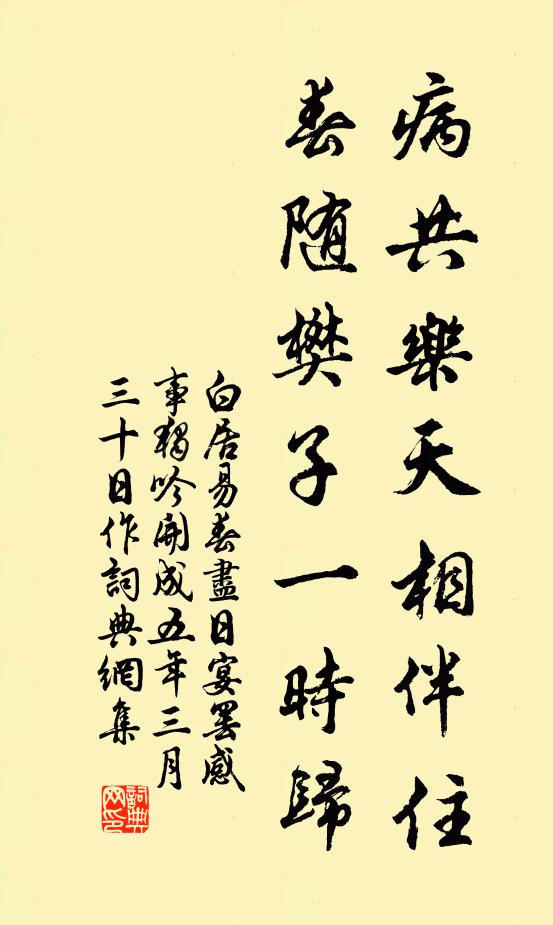 病共樂天相伴住
春随樊子一時歸
白居易春盡日宴罢感
事獨吟開成五年三月
三十日作詞典網集
詞典网印